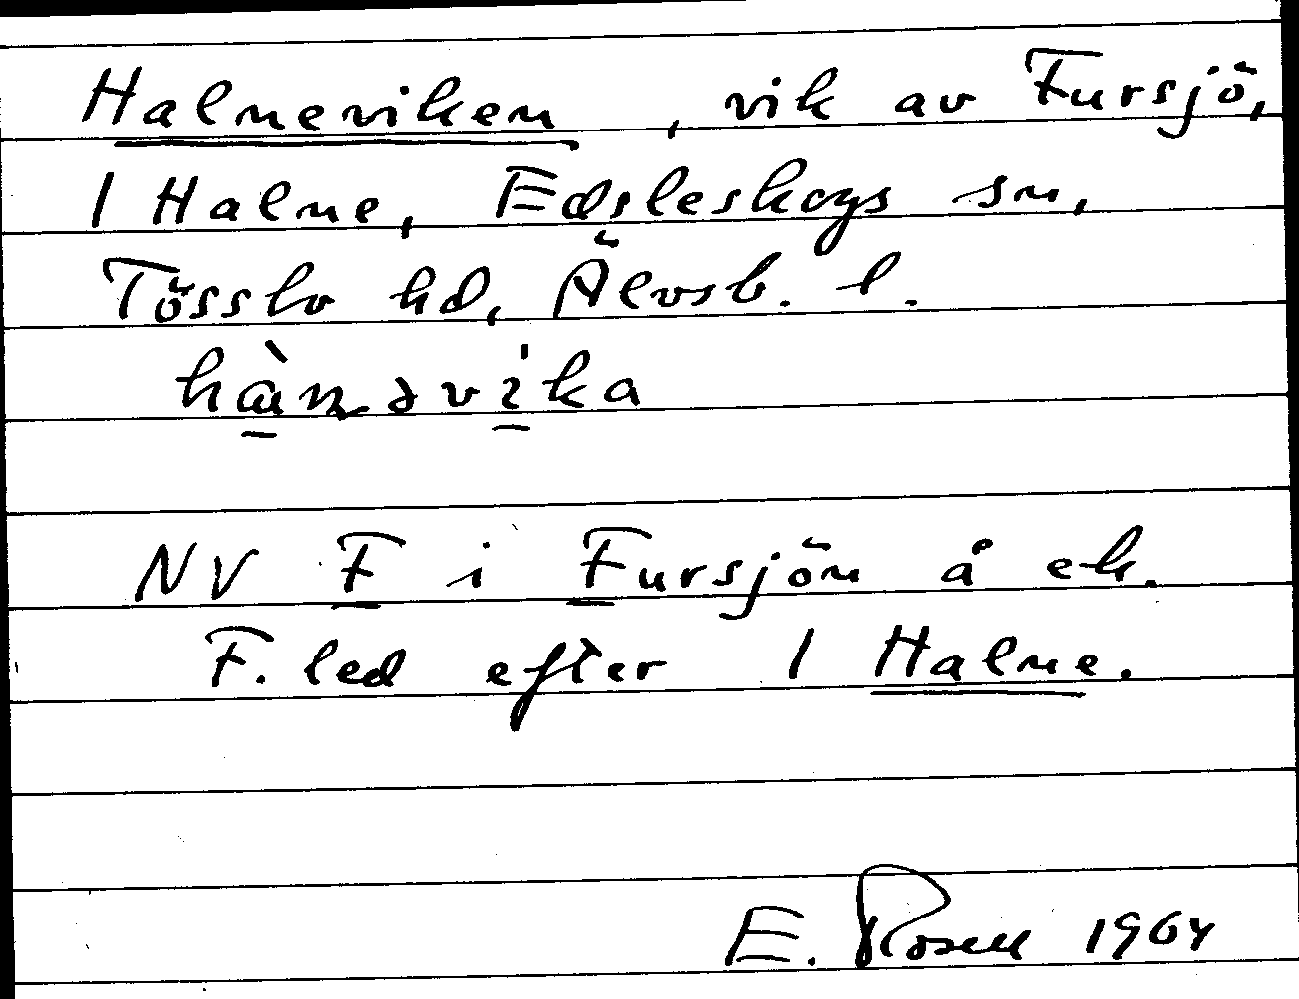 Halmeviken, vik av Fursjö,
1 Halme, Edsleskogs sn,
Tössbo hd, Älvsb. l.
NV F i Fursjön å ek.
F. led efter 1 Halme.
E. Rosell 1964